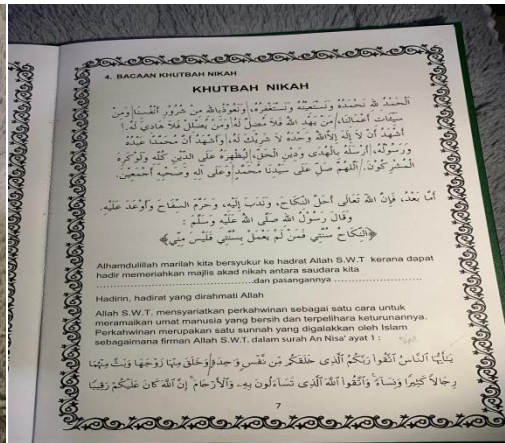 4. BACAAN KHUTBAH NIKAH
KHUTBAH NIKAH
اَلْحَمْدُ لِلّٰهِ نَحْمَدُهُ وَنَسْتَعِيْنُهُ وَنَسْتَغْفِرُهُ، وَنَعُوْذُ بِاللهِ مِنْ شُرُوْرِ أَنْفُسِنَا وَمِنْ
سَيِّئَاتِ أَعْمَالِنَا، مَنْ يَهْدِ اللهُ فَلَا مُضِلَّ لَهُ وَمَنْ يُضْلِلْ فَلَا هَادِيَ لَهُ.
أَشْهَدُ أَنْ لَا إِلٰهَ إِلَّا اللهُ وَحْدَهُ لَا شَرِيْكَ لَهُ، وَأَشْهَدُ أَنَّ مُحَمَّدًا عَبْدُهُ
وَرَسُوْلُهُ، أَرْسَلَهُ بِالْهُدَى وَدِيْنِ الْحَقِّ، لِيُظْهِرَهُ عَلَى الدِّيْنِ كُلِّهِ وَلَوْ كَرِهَ
الْمُشْرِكُوْنَ. اَللّٰهُمَّ صَلِّ عَلَى سَيِّدِنَا مُحَمَّدٍ وَعَلَى اٰلِهِ وَصَحْبِهِ أَجْمَعِيْنَ.
أَمَّا بَعْدُ، فَإِنَّ اللهَ تَعَالَى أَحَلَّ النِّكَاحَ، وَنَدَبَ إِلَيْهِ، وَحَرَّمَ السِّفَاحَ وَأَوْعَدَ عَلَيْهِ.
وَقَالَ رَسُوْلُ اللهِ صَلَّى اللهُ عَلَيْهِ وَسَلَّمَ :
﴿اَلنِّكَاحُ سُنَّتِي فَمَنْ لَمْ يَعْمَلْ بِسُنَّتِي فَلَيْسَ مِنِّي﴾
Alhamdulillah marilah kita bersyukur ke hadrat Allah S.W.T kerana dapat
hadir memeriahkan majlis akad nikah antara saudara kita
..............................................dan pasangannya .........................
Hadirin, hadirat yang dirahmati Allah
Allah S.W.T. mensyariatkan perkahwinan sebagai satu cara untuk
meramaikan umat manusia yang bersih dan terpelihara keturunannya.
Perkahwinan merupakan satu sunnah yang digalakkan oleh Islam
sebagaimana firman Allah S.W.T. dalam surah An Nisa' ayat 1 :
يَـٰٓأَيُّهَا ٱلنَّاسُ ٱتَّقُوا۟ رَبَّكُمُ ٱلَّذِى خَلَقَكُم مِّن نَّفْسٍ وَٰحِدَةٍ وَخَلَقَ مِنْهَا زَوْجَهَا وَبَثَّ مِنْهُمَا
رِجَالًا كَثِيرًا وَنِسَآءً ۚ وَٱتَّقُوا۟ ٱللَّهَ ٱلَّذِى تَسَآءَلُونَ بِهِۦ وَٱلْأَرْحَامَ ۚ إِنَّ ٱللَّهَ كَانَ عَلَيْكُمْ رَقِيبًا
7